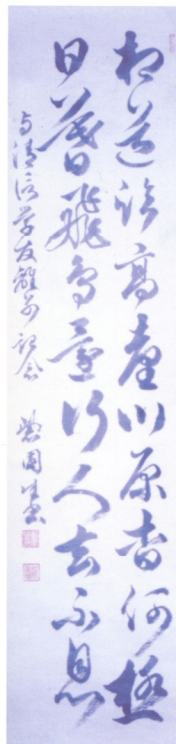 相送臨高臺川原杳何極
日暮飛鳥還行人去不息
与清学友離別記念